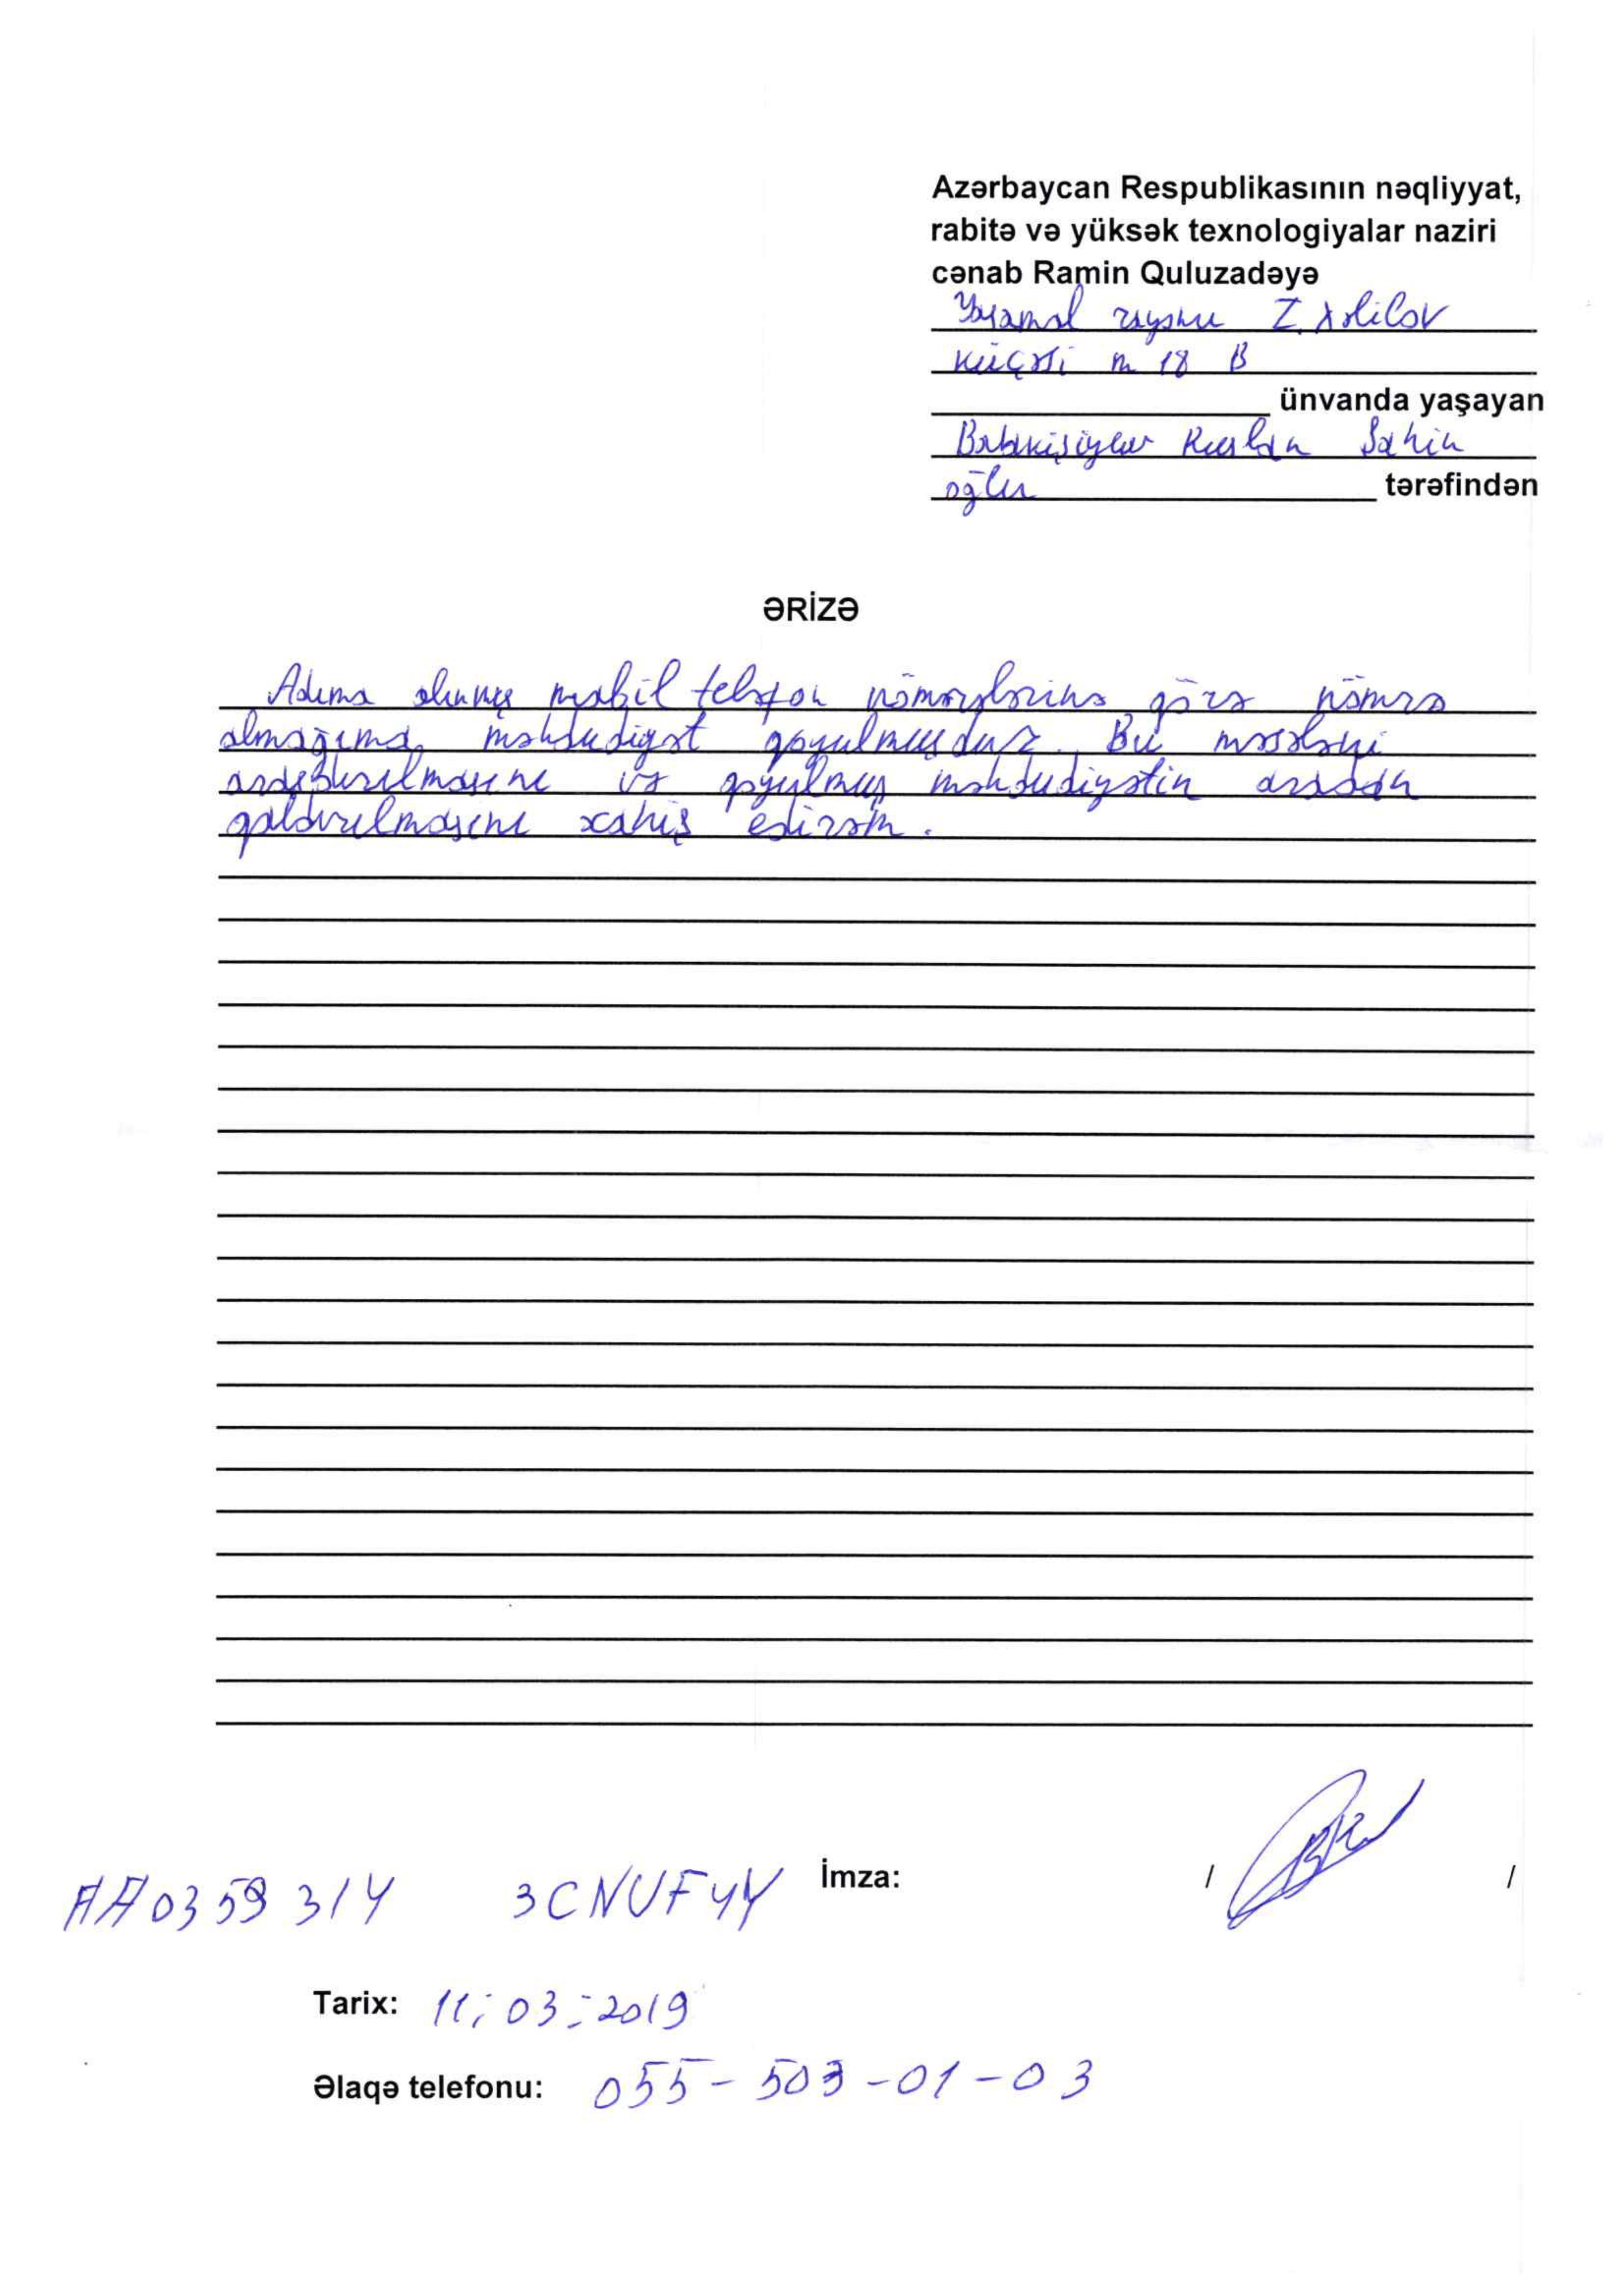 Azərbaycan Respublikasının nəqliyyat,
rabitə və yüksək texnologiyalar naziri
cənab Ramin Quluzadəyə
Yasamal rayonu Z. Xəlilov
küçəsi m 18 B
ünvanda yaşayan
Babakişiyev Ruslan Şahin
oğlu tərəfindən
ƏRİZƏ
Adıma olunmuş mobil telefon nömrələrinə görə nömrə
almağıma məhdudiyət qoyulmuşdur. Bu məsələni
araşdırılmasını və qoyulmuş məhdudiyətin aradan
qaldırılmasını xahiş edirəm.
İmza: / /
AA0359314 3CNUF4Y
Tarix: 11.03.2019
Əlaqə telefonu: 055-503-01-03